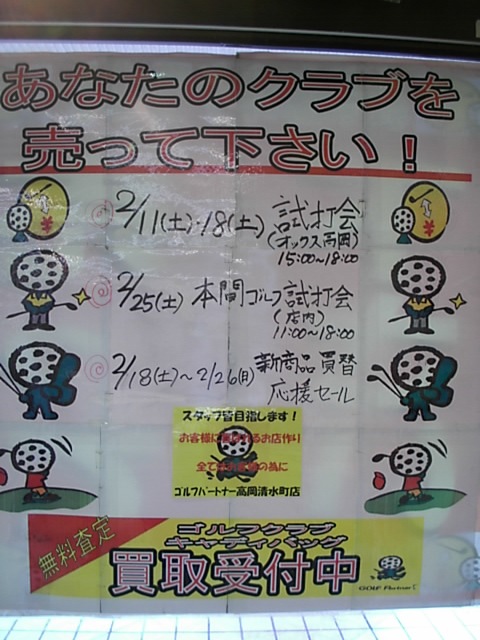 あなたのクラブを
売って下さい！
2/11(土)・18(土) 試打会
(オックス高岡)
15:00〜18:00
2/25(土) 本間ゴルフ試打会
(店内)
11:00〜18:00
2/18(土)〜2/26(日) 新商品買替
応援セール
スタッフ皆目指します！
お客様に喜ばれるお店作り
全てはお客様の為に
ゴルフパートナー高岡清水町店
無料査定
ゴルフクラブ
キャディバッグ
買取受付中
GOLF Partner